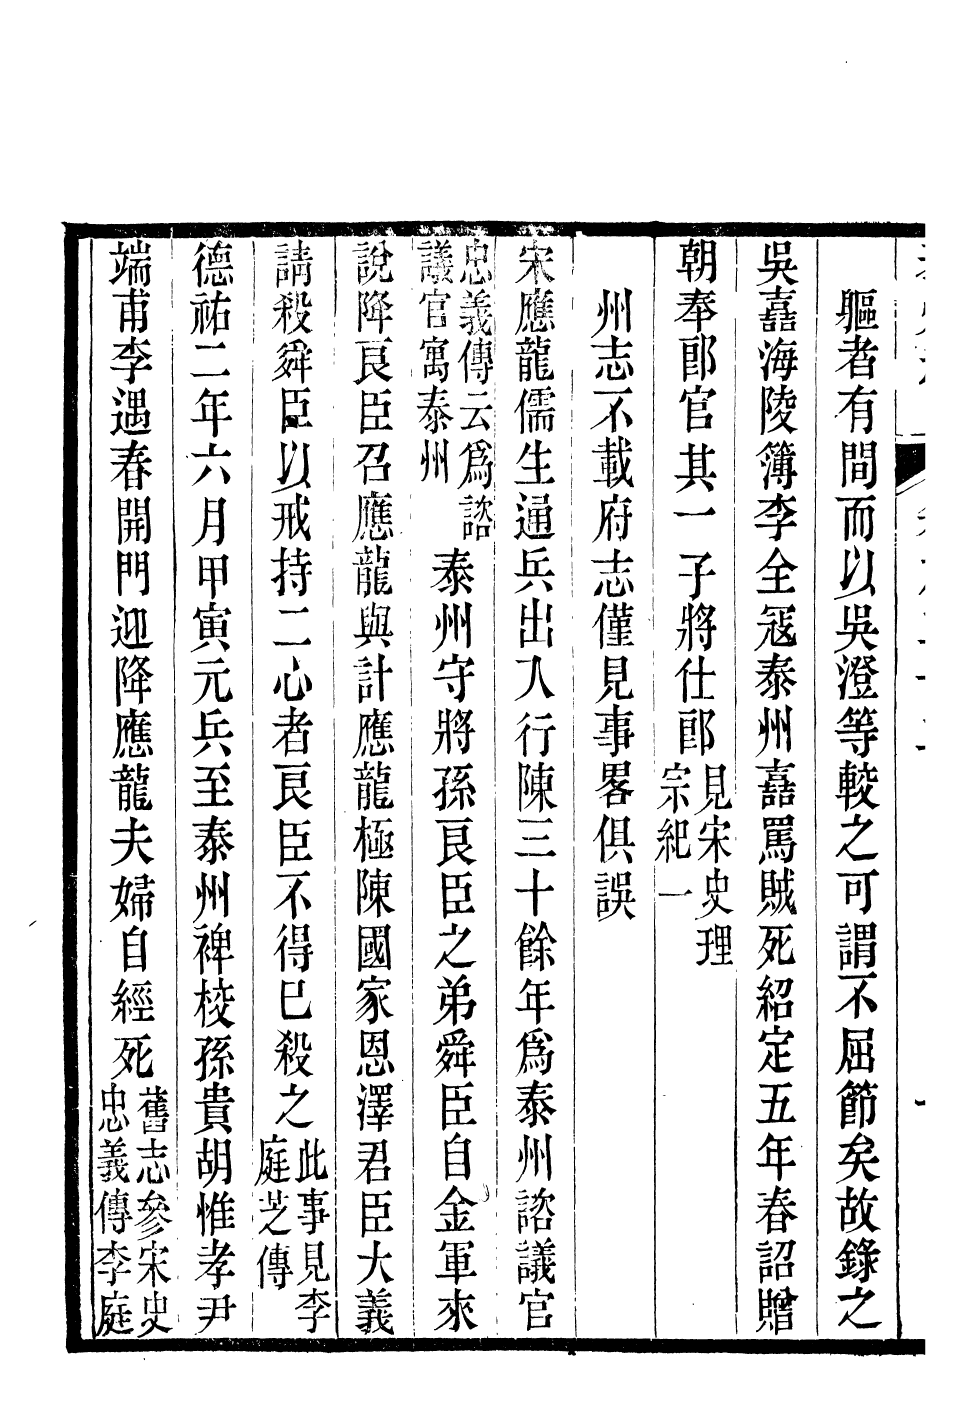 軀者有間而以吳澄等較之可謂不屈節矣故錄之
吳嘉海陵簿李全寇泰州嘉罵賊死紹定五年春詔贈
朝奉郎官其一子將仕郎見宋史理宗紀一
州志不載府志僅見事畧俱誤
宋應龍儒生通兵出入行陳三十餘年爲泰州諮議官
忠義傳云爲諮議官寓泰州泰州守將孫良臣之弟舜臣自金軍來
說降良臣召應龍與計應龍極陳國家恩澤君臣大義
請殺舜臣以戒持二心者良臣不得已殺之此事見李庭芝傳
德祐二年六月甲寅元兵至泰州裨校孫貴胡惟孝尹
端甫李遇春開門迎降應龍夫婦自經死舊志參宋史忠義傳李庭